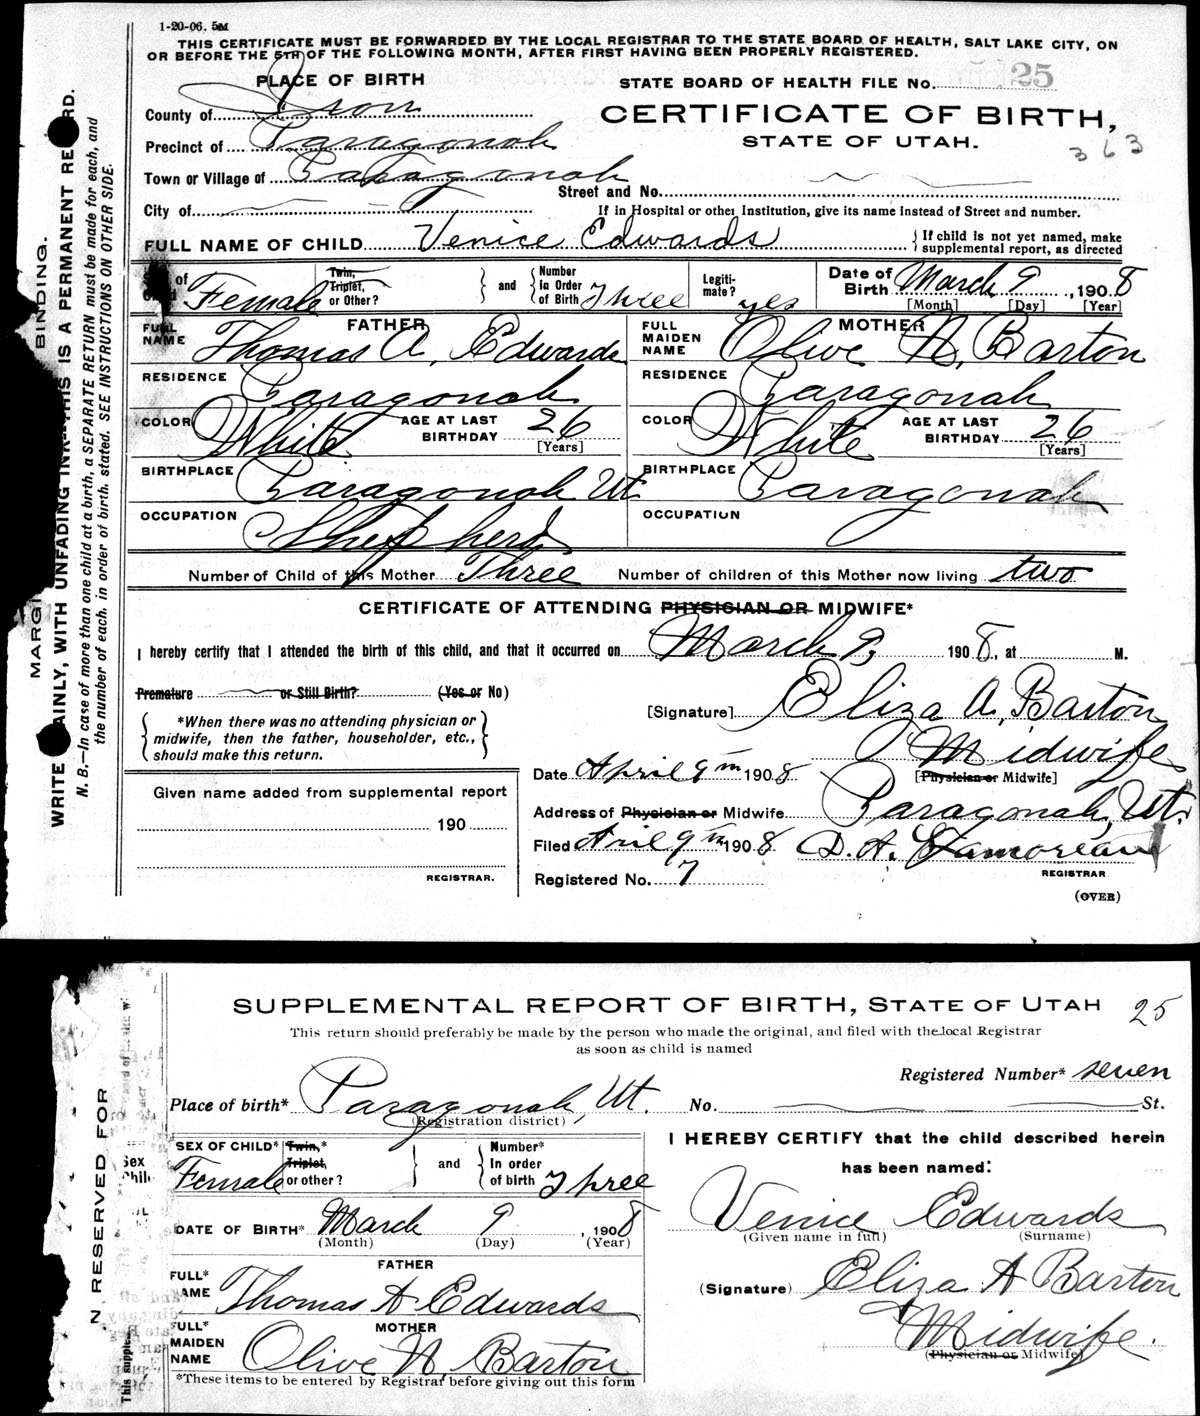 1-20-06. 5M
THIS CERTIFICATE MUST BE FORWARDED BY THE LOCAL REGISTRAR TO THE STATE BOARD OF HEALTH, SALT LAKE CITY, ON
OR BEFORE THE 5TH OF THE FOLLOWING MONTH, AFTER FIRST HAVING BEEN PROPERLY REGISTERED.
PLACE OF BIRTH
STATE BOARD OF HEALTH FILE No. 25
County of Iron
CERTIFICATE OF BIRTH,
STATE OF UTAH.
363
Precinct of Paragonah
Town or Village of Paragonah
Street and No.
City of
If in Hospital or other Institution, give its name instead of Street and number.
FULL NAME OF CHILD Venice Edwards
If child is not yet named, make supplemental report, as directed
of Female
Twin, Triplet, or Other?
and
Number in Order of Birth Three
Legiti-mate? yes
Date of Birth March 9, 1908
[Month] [Day] [Year]
FATHER
FULL NAME Thomas A. Edwards
MOTHER
FULL MAIDEN NAME Olive N. Barton
RESIDENCE Paragonah
RESIDENCE Paragonah
COLOR White
AGE AT LAST BIRTHDAY 26
[Years]
COLOR White
AGE AT LAST BIRTHDAY 26
[Years]
BIRTHPLACE Paragonah Ut.
BIRTHPLACE Paragonah
OCCUPATION Shepherd
OCCUPATION
Number of Child of this Mother Three
Number of children of this Mother now living two
CERTIFICATE OF ATTENDING PHYSICIAN OR MIDWIFE*
I hereby certify that I attended the birth of this child, and that it occurred on March 9, 1908, at M.
Premature or Still Birth? (Yes or No)
[Signature] Eliza A. Barton
Midwife
[Physician or Midwife]
*When there was no attending physician or
midwife, then the father, householder, etc.,
should make this return.
Date April 9th 1908
Given name added from supplemental report
190
REGISTRAR.
Address of Physician or Midwife Paragonah, Ut.
Filed April 9th 1908 D. A. Lamoreaux
REGISTRAR
Registered No. 7
(OVER)
MARGI BINDING.
WRITE AINLY, WITH UNFADING INK—THIS IS A PERMANENT RE RD.
N. B.—In case of more than one child at a birth, a SEPARATE RETURN must be made for each, and
the number of each, in order of birth, stated. SEE INSTRUCTIONS ON OTHER SIDE.
SUPPLEMENTAL REPORT OF BIRTH, STATE OF UTAH
25
This return should preferably be made by the person who made the original, and filed with the local Registrar
as soon as child is named
Registered Number* seven
Place of birth* Paragonah, Ut. No. St.
(Registration district)
SEX OF CHILD* Female
Twin,* Triplet, or other?
and
Number* In order of birth Three
DATE OF BIRTH* March 9, 1908
(Month) (Day) (Year)
FATHER
FULL* NAME Thomas A Edwards
MOTHER
FULL* MAIDEN NAME Olive N. Barton
*These items to be entered by Registrar before giving out this form
I HEREBY CERTIFY that the child described herein
has been named:
Venice Edwards
(Given name in full) (Surname)
(Signature) Eliza A Barton
Midwife.
(Physician or Midwife)
N RESERVED FOR